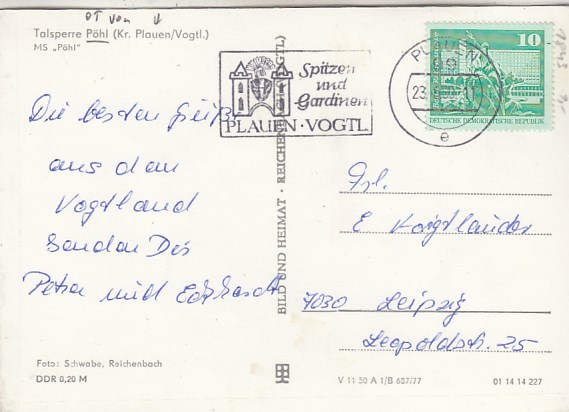 OT von
Talsperre Pöhl (Kr. Plauen/Vogtl.)
MS „Pöhl"
Spitzen
und
Gardinen
PLAUEN · VOGTL
PLAUEN
23.
e
10
DEUTSCHE DEMOKRATISCHE REPUBLIK
Die besten Grüße
aus dem
Vogtland
senden Dir
Petra und Eckhardt
BILD UND HEIMAT · REICHENBACH (VOGTL)
Frl.
E. Voigtländer
7030 Leipzig
Leopoldstr. 25
Foto: Schwabe, Reichenbach
DDR 0,20 M
V 11 50 A 1/B 687/77
01 14 14 227